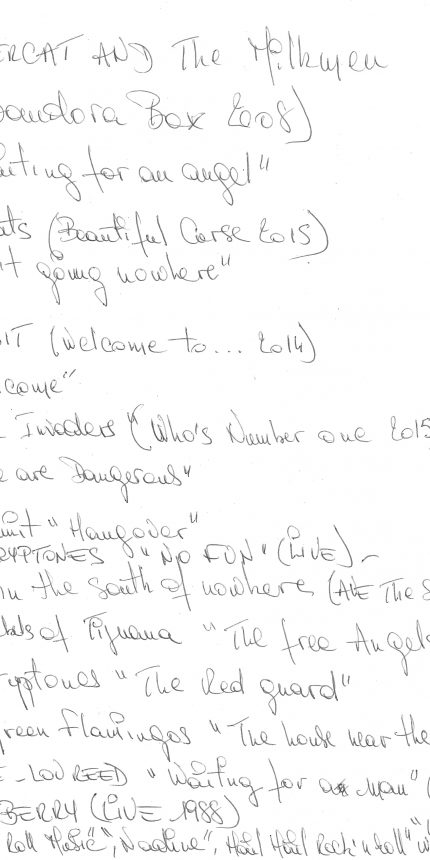 ERCAT AND The Milkmen
Pandora Box 2008)
aiting for an angel"
ats (Beautiful Curse 2015)
t going nowhere"
IT (Welcome to... 2014)
come"
Invaders "(Who's Number one 2015
e are Dangerous"
"Hangover"
RYPTONES "NO FUN" (LIVE) -
in the South of nowhere (
of Tijuana "The free Angels
ryptones "The Red guard"
reen Flamingos "The house near the
E - LOU REED "Waiting for a Man" (
BERRY (LIVE 1988)
Roll Music", Nadine", Hail Hail Rock'n Roll"